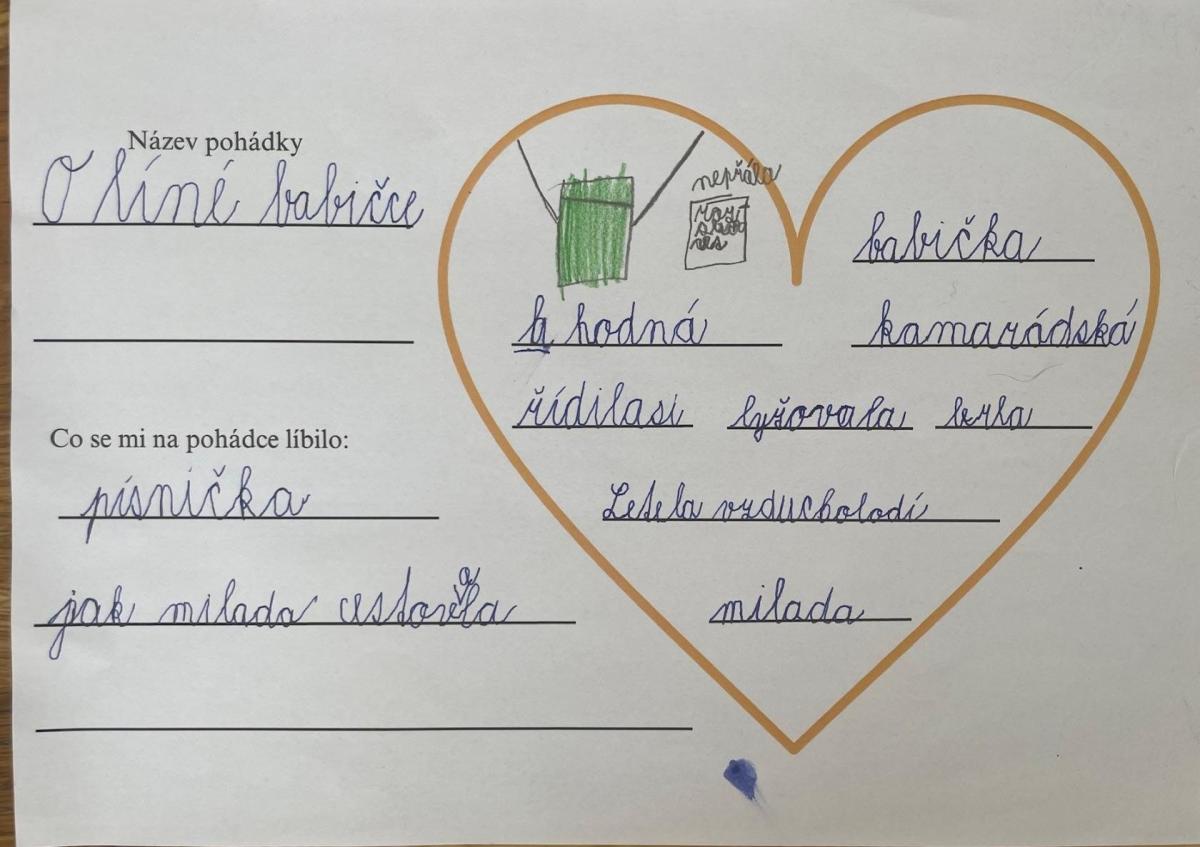 Název pohádky
O líné babičce
Co se mi na pohádce líbilo:
písnička
jak milada cestovala
nepřála
babička
hodná
kamarádská
řídilasi lyžovala byla
Letela vzducholodí
milada